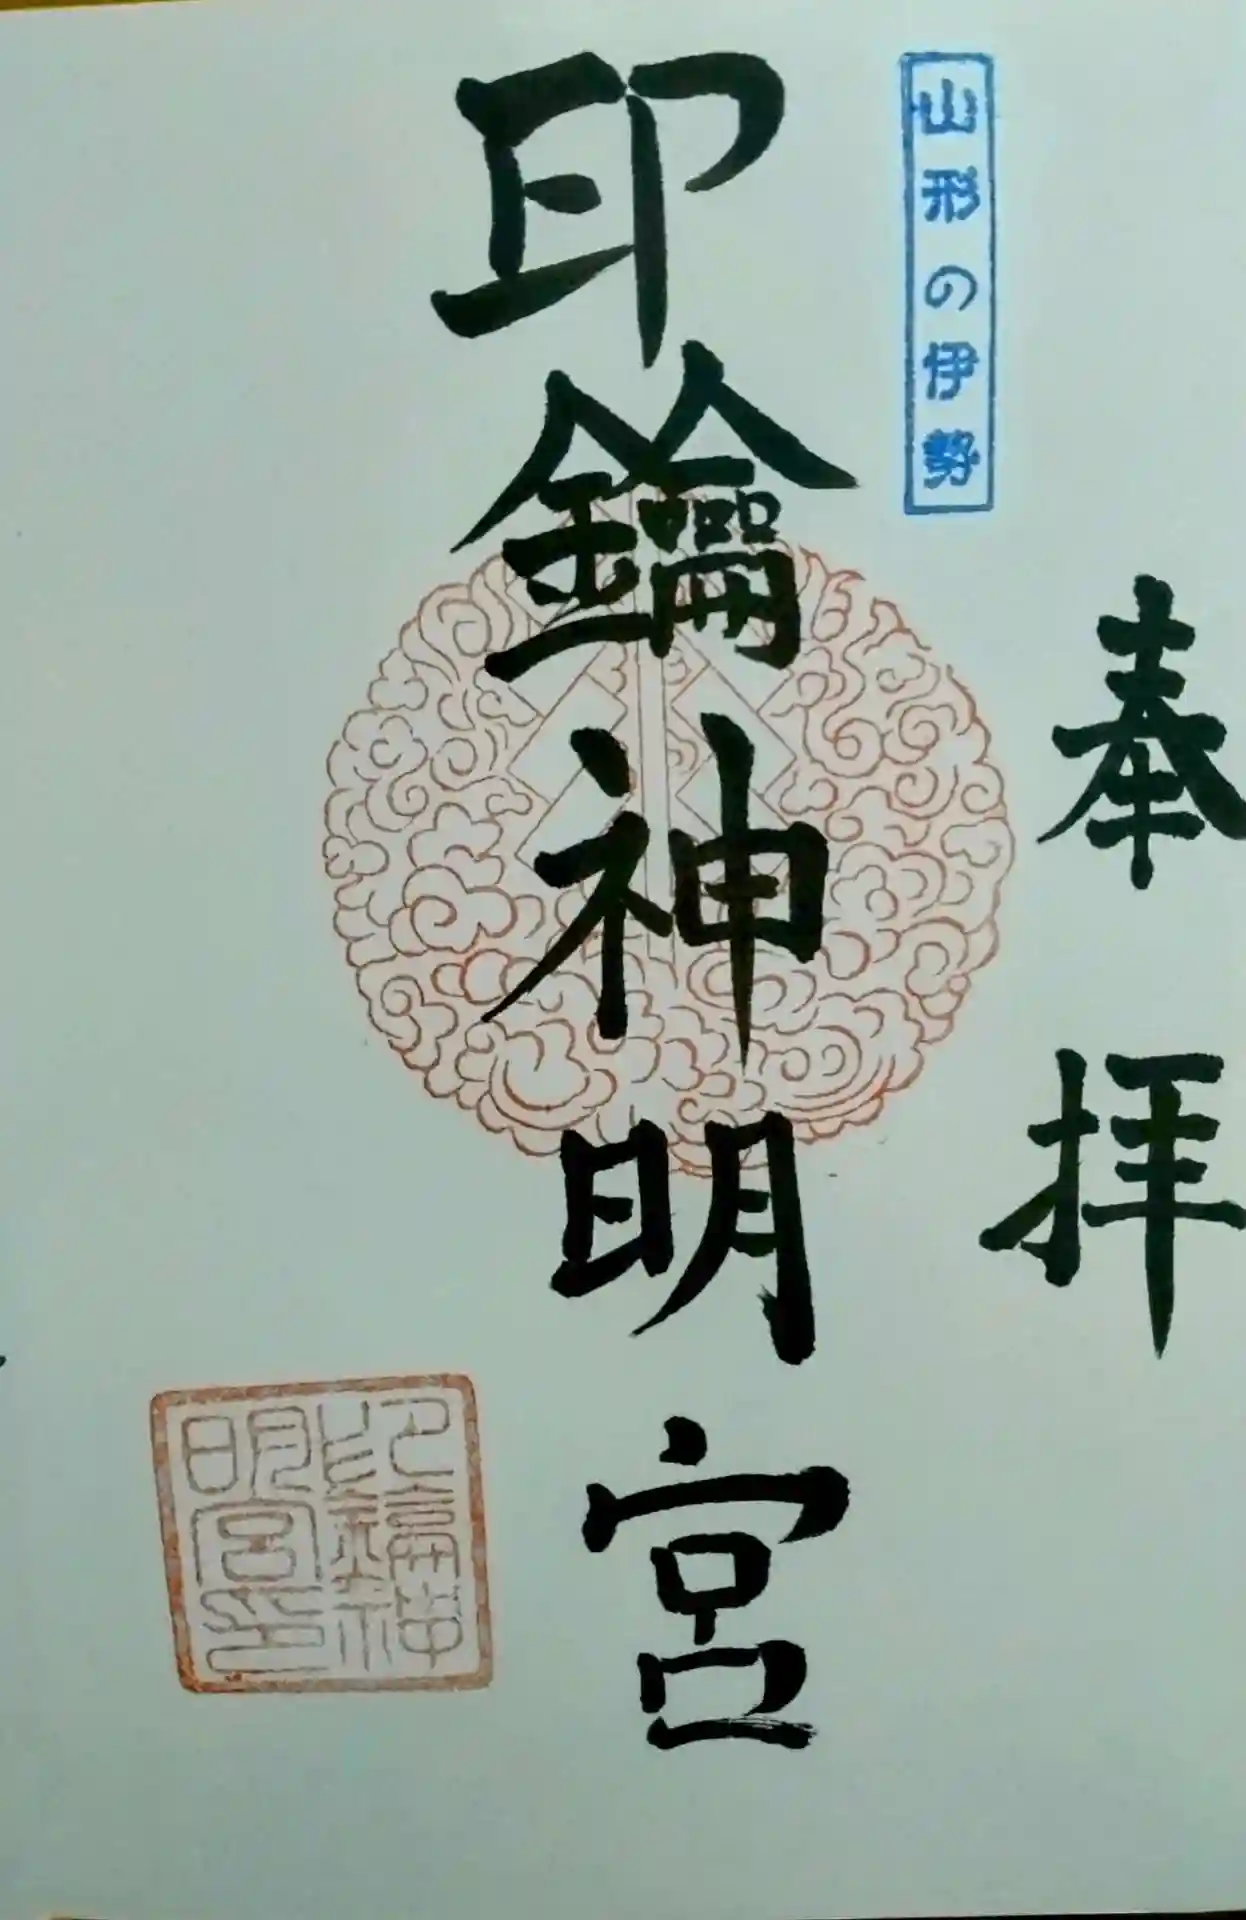 奉拝
山形の伊勢
印鑰神明宮
印鑰神
明宮印